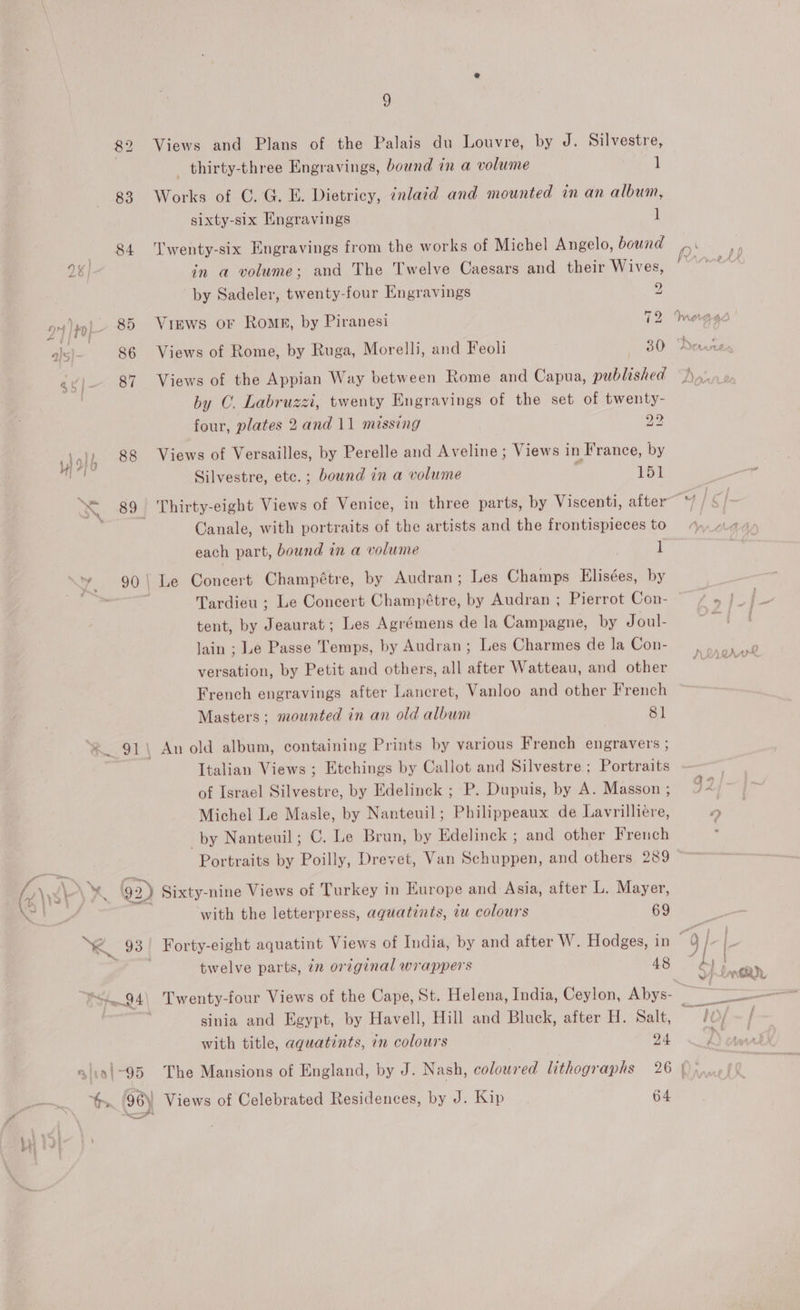 9
82 Views and Plans of the Palais du Louvre, by J. Silvestre,
thirty-three Engravings, bound in a volume 1
83 Works of C. G. E. Dietricy, inlaid and mounted in an album,
sixty-six Engravings 1
84 Twenty-six Engravings from the works of Michel Angelo, bound
in a volume; and The Twelve Caesars and their Wives,
by Sadeler, twenty-four Engravings 2
85 Views of Rome, by Piranesi 72
86 Views of Rome, by Ruga, Morelli, and Feoli 30
87 Views of the Appian Way between Rome and Capua, published
by C. Labruzzi, twenty Engravings of the set of twenty-
four, plates 2 and 11 missing 22
88 Views of Versailles, by Perelle and Aveline; Views in France, by
Silvestre, etc.; bound in a volume 151
89 Thirty-eight Views of Venice, in three parts, by Viscenti, after
Canale, with portraits of the artists and the frontispieces to
each part, bound in a volume 1
90 Le Concert Champêtre, by Audran; Les Champs Elisées, by
Tardieu; Le Concert Champêtre, by Audran; Pierrot Con-
tent, by Jeaurat; Les Agrémens de la Campagne, by Joul-
lain; Le Passe Temps, by Audran; Les Charmes de la Con-
versation, by Petit and others, all after Watteau, and other
French engravings after Lancret, Vanloo and other French
Masters; mounted in an old album 81
91 An old album, containing Prints by various French engravers;
Italian Views; Etchings by Callot and Silvestre; Portraits
of Israel Silvestre, by Edelinck; P. Dupuis, by A. Masson;
Michel Le Masle, by Nanteuil; Philippeaux de Lavrillière,
by Nanteuil; C. Le Brun, by Edelinck; and other French
Portraits by Poilly, Drevet, Van Schuppen, and others 289
92 Sixty-nine Views of Turkey in Europe and Asia, after L. Mayer,
with the letterpress, aquatints, iu colours 69
93 Forty-eight aquatint Views of India, by and after W. Hodges, in
twelve parts, in original wrappers 48
94 Twenty-four Views of the Cape, St. Helena, India, Ceylon, Abys-
sinia and Egypt, by Havell, Hill and Bluck, after H. Salt,
with title, aquatints, in colours 24
95 The Mansions of England, by J. Nash, coloured lithographs 26
96 Views of Celebrated Residences, by J. Kip 64